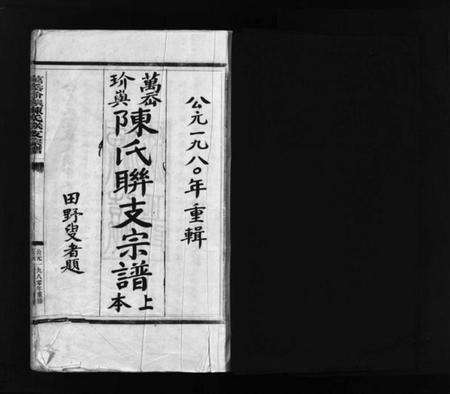 公元一九八〇年重輯
萬岙
珍輿
陳氏聯支宗譜
上本
田野叟者題